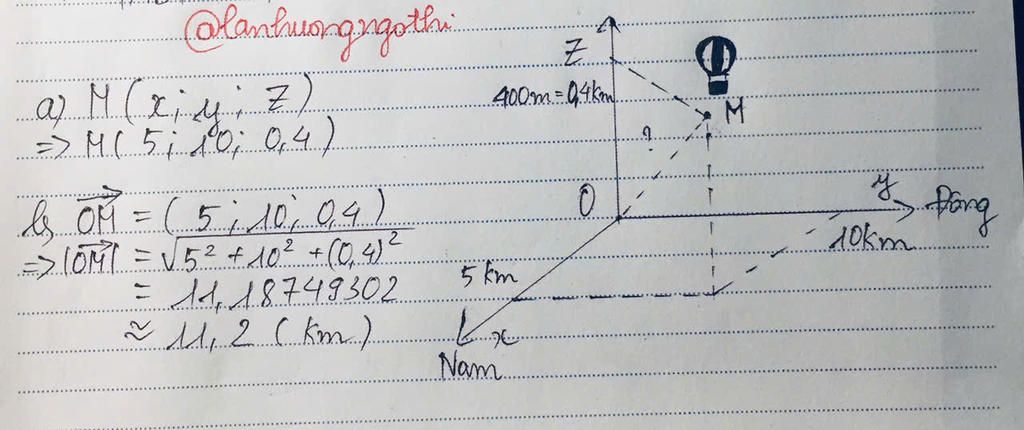 @lanhuongngothi
a) M ( x ; y ; Z )
=> M ( 5 ; 10 ; 0,4 )
b, OM = ( 5 ; 10 ; 0,4 )
=> |OM| = √5² + 10² + (0,4)²
= 11,18749302
≈ 11,2 ( km )
Z
400m = 0,4km
M
?
O
y
Đông
10km
5 km
x
Nam